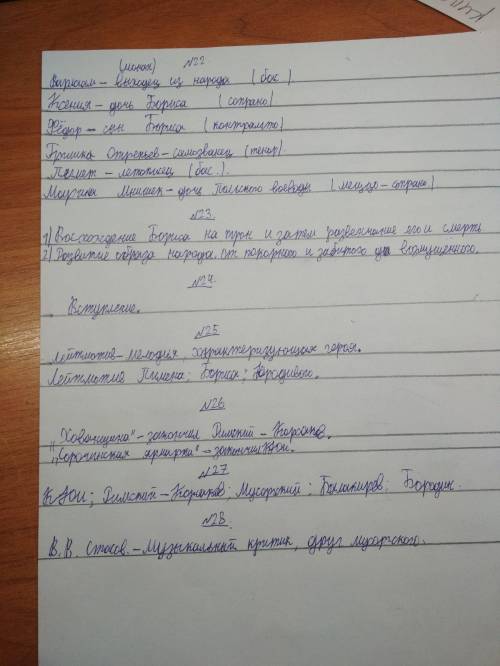 (монах) №22
Варлаам - выходец из народа (бас)
Ксения - дочь Бориса (сопрано)
Фёдор - сын Бориса (контральто)
Гришка Отрепьев - самозванец (тенор).
Пимен - летописец (бас.).
Марина Мнишек - дочь Польского воеводы (меццо-сопрано)
№23
1) Восхождение Бориса на трон и затем развенчание его и смерть
2) Развитие образа народа от покорного и забитого до возмущенного.
№24.
Вступление.
№25
Лейтмотив - мелодия, характеризующая героя.
Лейтмотив Пимена; Бориса; Юродивого.
№26
"Хованщина" - закончил Римский-Корсаков.
"Сорочинская ярмарка" - закончил Кюи.
№27
Кюи; Римский-Корсаков; Мусоргский; Балакирев; Бородин.
№28.
В.В. Стасов - Музыкальный критик, друг мусоргского.